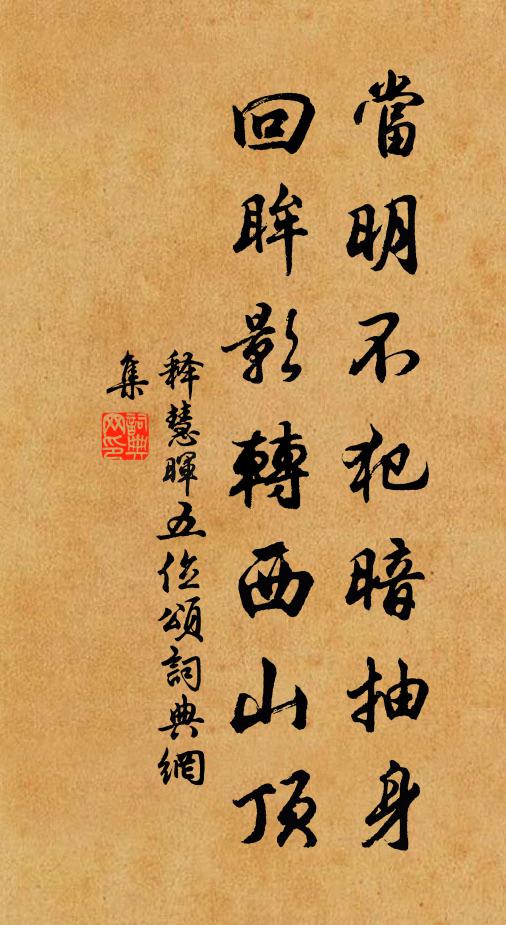 當明不犯暗抽身
回眸影轉西山頂
释慧暉五位頌詞典網
集
詞典网印